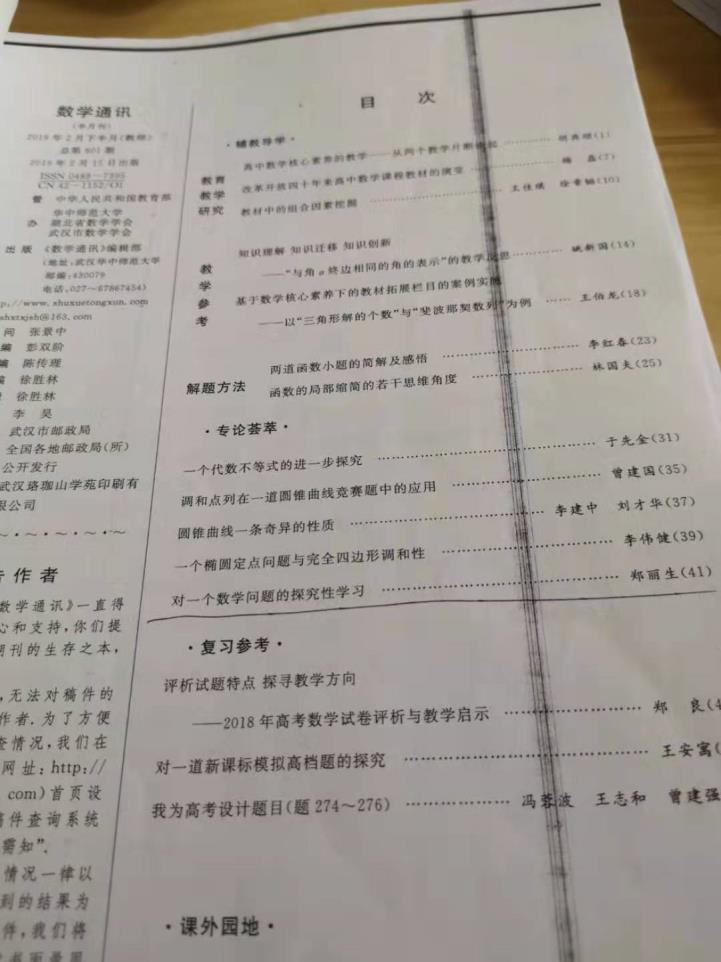 数学通讯
(半月刊)
2019年2月下半月(教师)
总第801期
2019年2月15日出版
ISSN 0488-7395
CN 42-1152/O1
管 中华人民共和国教育部
华中师范大学
办 湖北省数学学会
武汉市数学学会
出版 《数学通讯》编辑部
(地址:武汉华中师范大学
邮编:430079
电话:027-67867454)
p://www.shuxuetongxun.com
shxtxjsh@163.com
问 张景中
编 彭双阶
编 陈传理
徐胜林
徐胜林
李昊
武汉市邮政局
全国各地邮政局(所)
公开发行
武汉珞珈山学苑印刷有
限公司
作者
数学通讯》一直得
心和支持,你们提
期刊的生存之本,
,无法对稿件的
作者.为了方便
查情况,我们在
网址:http://
com)首页设
稿件查询系统
需知”.
情况一律以
到的结果为
件,我们将
目次
·辅教导学·
教育
教学
研究
高中数学核心素养的教学——从两个数学片断 胡典顺(1)
改革开放四十年来高中数学课程教材的演变 (7)
教材中的组合因素挖掘 王佳琪 徐章韬(10)
教
学
参
考
知识理解 知识迁移 知识创新
——“与角α终边相同的角的表示”的教学反思 姚新国(14)
基于数学核心素养下的教材拓展栏目的案例实施
——以“三角形解的个数”与“斐波那契数列”为例 王伯龙(18)
解题方法
两道函数小题的简解及感悟 李红春(23)
函数的局部缩简的若干思维角度 林国夫(25)
·专论荟萃·
一个代数不等式的进一步探究 于先金(31)
调和点列在一道圆锥曲线竞赛题中的应用 曾建国(35)
圆锥曲线一条奇异的性质 李建中 刘才华(37)
一个椭圆定点问题与完全四边形调和性 李伟健(39)
对一个数学问题的探究性学习 郑丽生(41)
·复习参考·
评析试题特点 探寻教学方向
——2018年高考数学试卷评析与教学启示 郑良(4
对一道新课标模拟高档题的探究 王安寓(
我为高考设计题目(题274~276) 冯蓉波 王志和 曾建强
·课外园地·